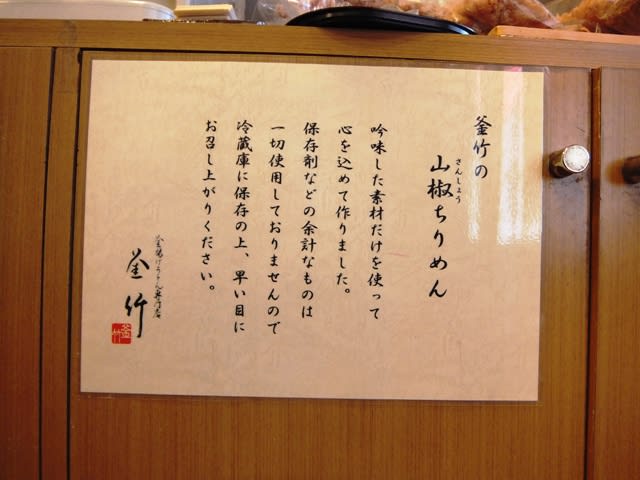 釜竹の
山椒ちりめん
さんしょう
吟味した素材だけを使って
心を込めて作りました。
保存剤などの余計なものは
一切使用しておりませんので
冷蔵庫に保存の上、早い目に
お召し上がりください。
釜揚げうどん専門店
釜竹
釜竹